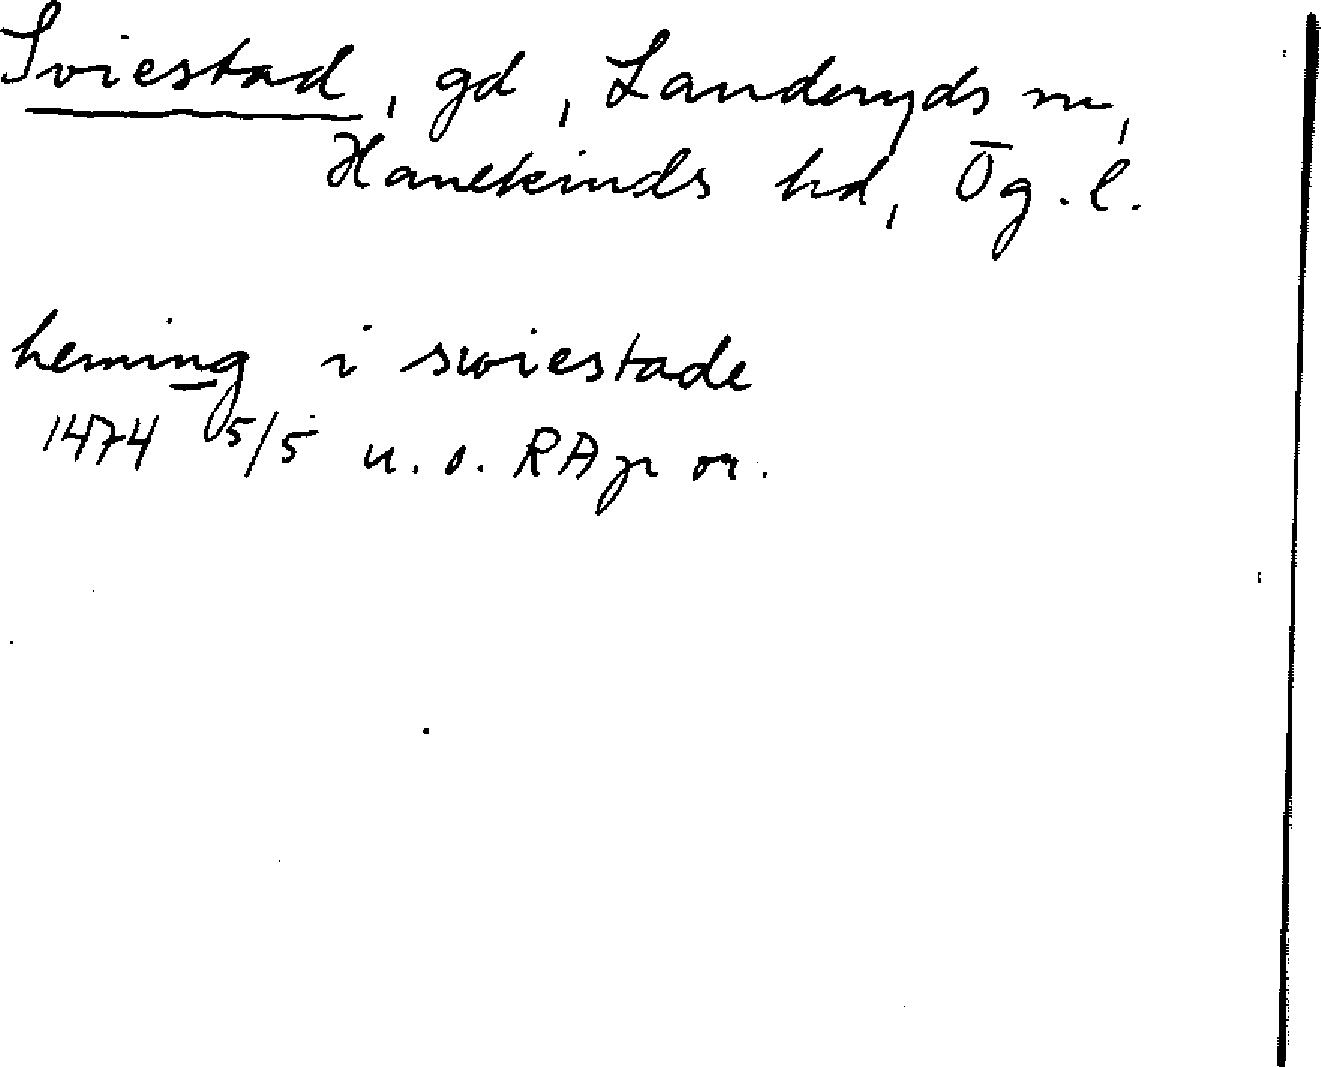 Sviestad, gd, Landeryds sn,
Hanekinds hd, Ög.l.
heming i swiestade
1474 5/5 u.o. RAp or.